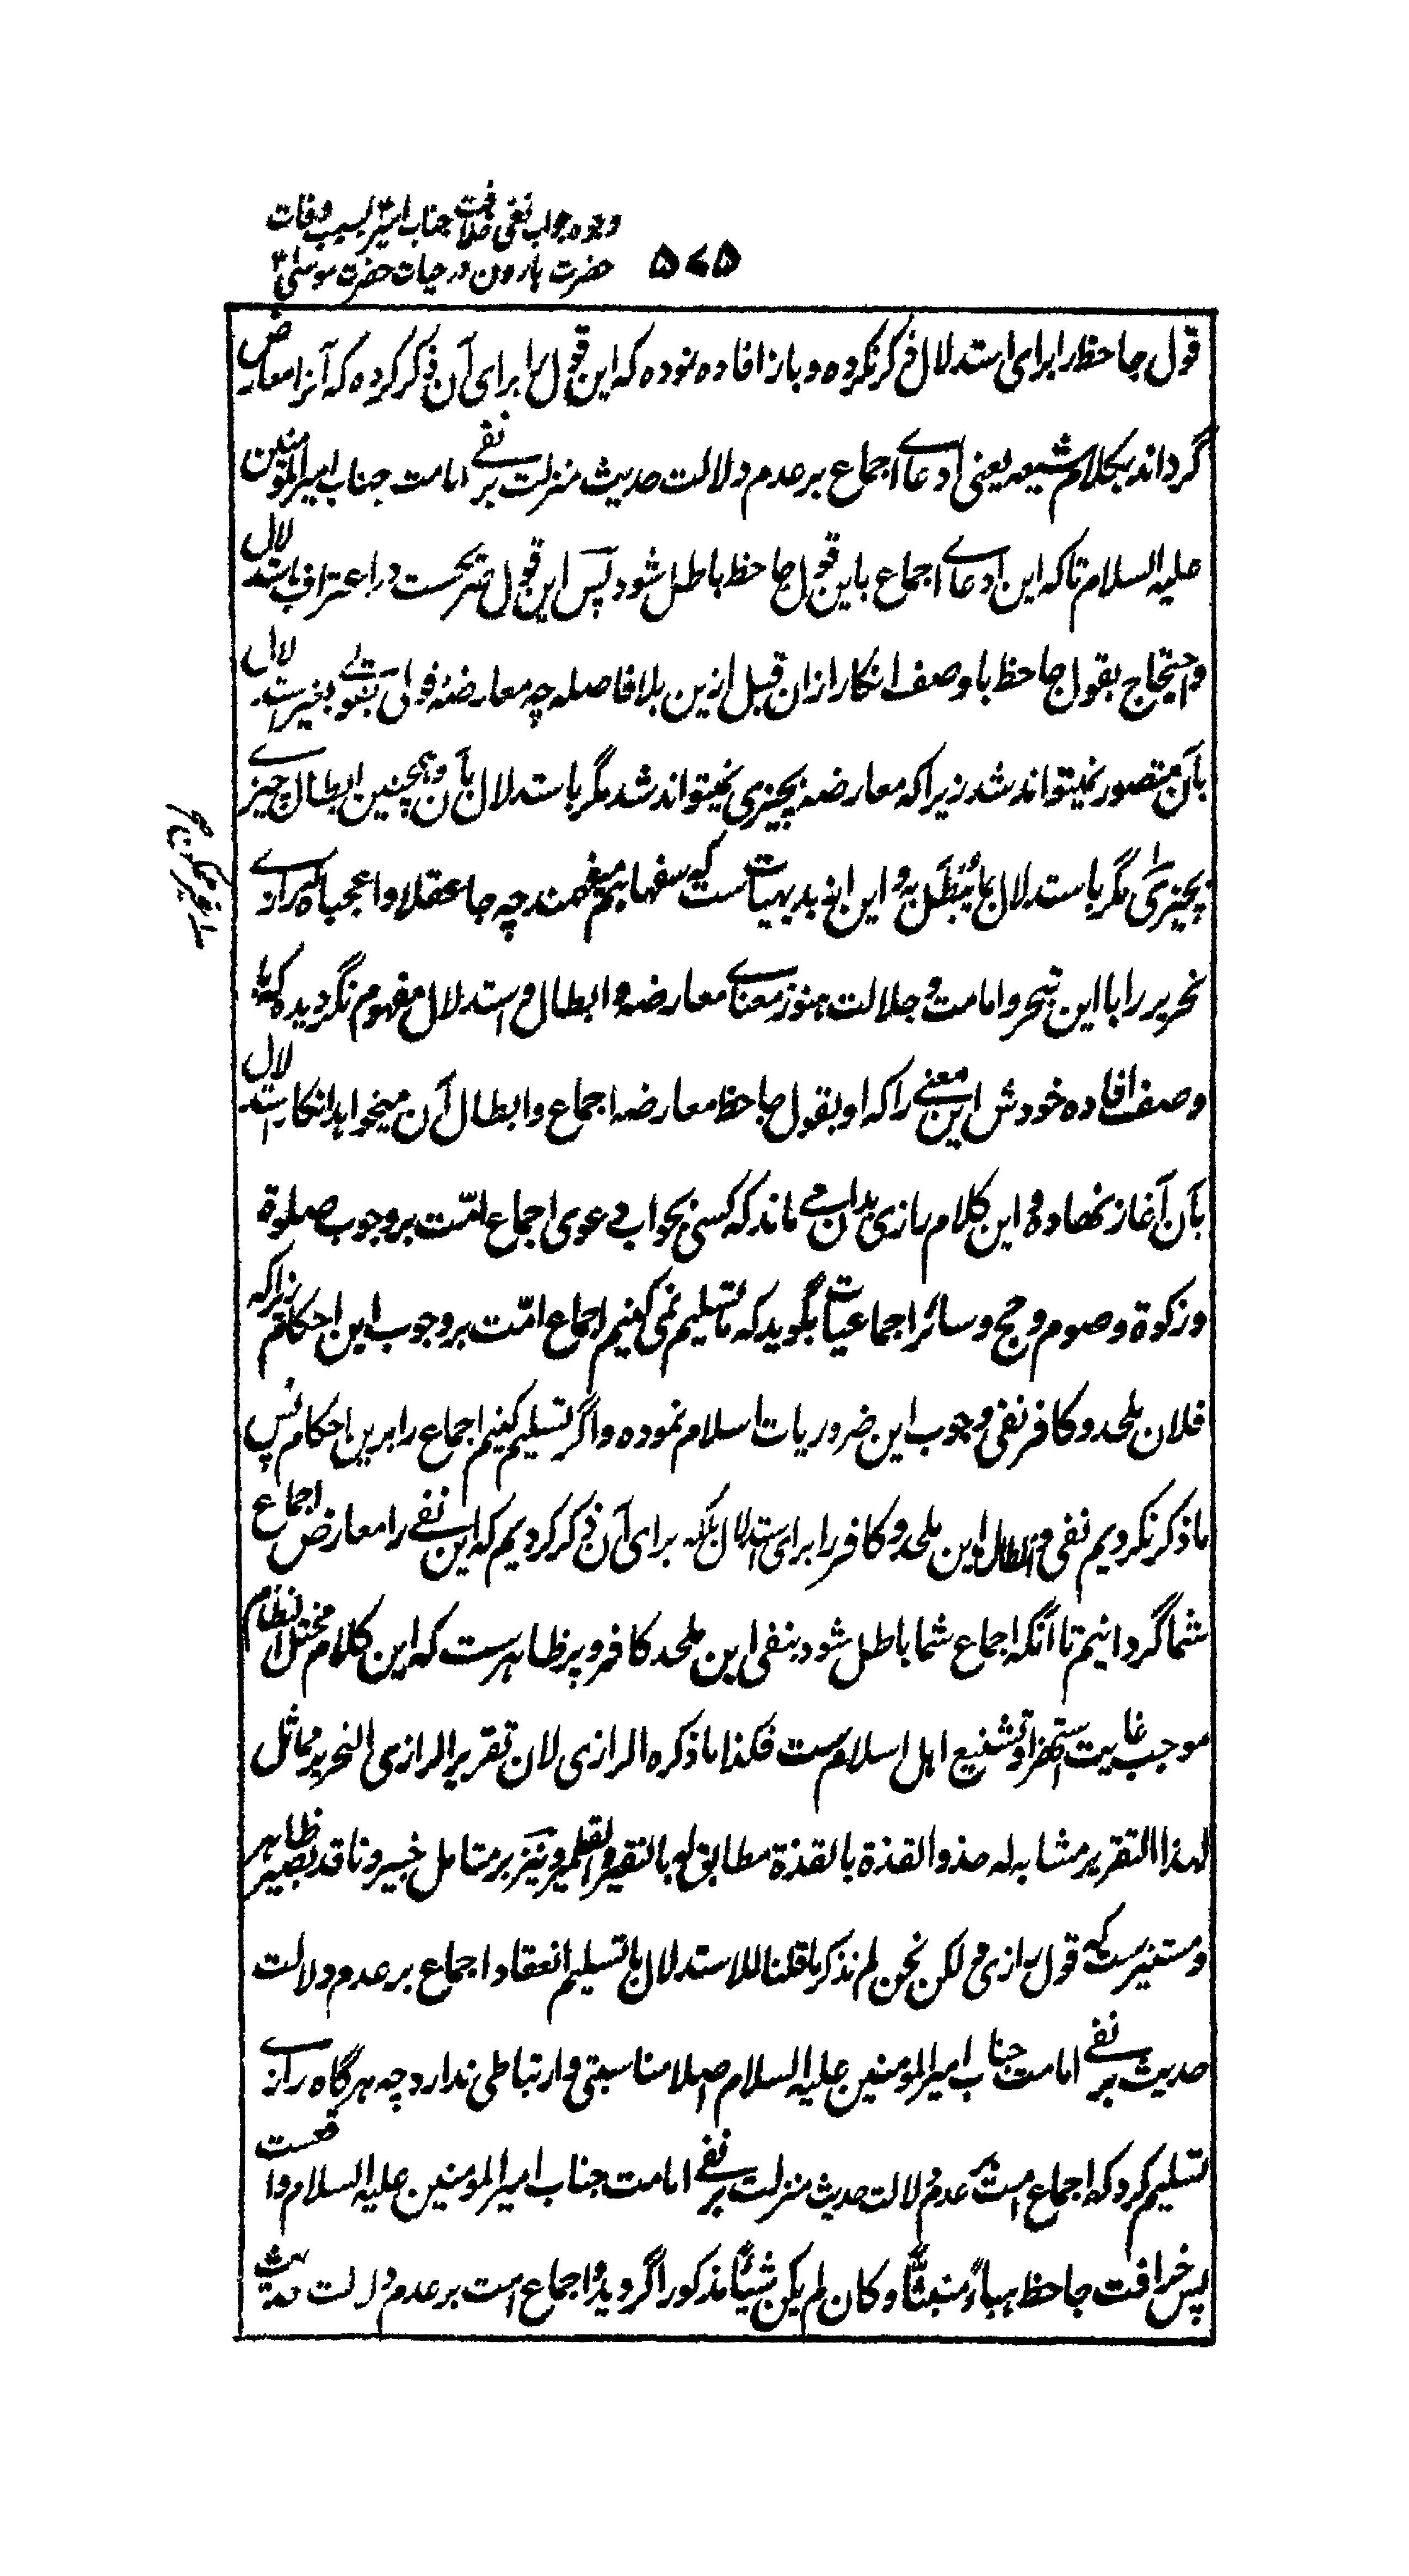 وجوه جواب نفی خلافت جناب امیرؑ بسبب وفات
حضرت ہارون در حیات حضرت موسیٰؑ
۵۷۵
قول جاحظ را برای استدلال ذکر نکرده و باز افاده نموده که این قول را برای آن ذکر کرده که آنرا معارض
گرداند بکلام شیعه یعنی ادعای اجماع بر عدم دلالت حدیث منزلت بر نفی امامت جناب امیرالمؤمنین
علیہ السلام تا که این ادعای اجماع باین قول جاحظ باطل شود پس این قول صریحست در اعتراف باستدلال
و احتجاج بقول جاحظ با وصف انکار ازان قبل ازین بلا فاصله چه معارضۀ قولی بقولی بغیر استدلال
بآن متصور نمیتواند شد زیرا که معارضه بچیزی نمیتواند شد مگر باستدلال بآن و همچنین ابطال چیزی
بچیزی مگر باستدلال بما یُبْطَل بہ و این از بدیهیات ست که سفها هم میفهمند چه جا عقلا و اعجباه که رازی
نحریر را با این تبحر و امامت و جلالت هنوز معنای معارضه و ابطال و استدلال مفهوم نگردیده که با
وصف افاده خودش این معنی را که او بقول جاحظ معارضه اجماع و ابطال آن میخواهد انکار استدلال
بآن آغاز نهاده و این کلام رازی بدان می ماند که کسی بجواب دعوی اجماع امّت بر وجوب صلوة
و زکوة و صوم و حج و سائر اجماعیات بگوید که ما تسلیم نمی کنیم اجماع امّت بر وجوب این احکام زیرا که
فلان ملحد و کافر نفی وجوب این ضروریات اسلام نموده و اگر تسلیم کنیم اجماع را برین احکام پس
ما ذکر نکردیم نفی و ابطال این ملحد و کافر را برای استدلال بلکه برای آن ذکر کردیم که این نفی را معارض اجماع
شما گردانیم تا آنکه اجماع شما باطل شود بنفی این ملحد کافر و پر ظاهرست که این کلام مختل النظام
موجب غایت استهزا و تشنیع اهل اسلام ست فکذا ما ذکره الرازی لان تقریر الرازی النحریر مماثل
لهذا التقریر مشابه له حذو القذة بالقذة مطابق له بالنقیر و القطمیر و نیز بر متامل خبیر و ناقد بصیر ظاهر
و مستنیرست که قول رازی لکن نحن لم نذکر ما قلنا للاستدلال با تسلیم انعقاد اجماع بر عدم دلالت
حدیث بر نفی امامت جناب امیرالمومنین علیہ السلام اصلا مناسبتی و ارتباطی ندارد چه هرگاه رازی
تسلیم کرد که اجماع امت بر عدم دلالت حدیث منزلت بر نفی امامت جناب امیرالمومنین علیہ السلام واقعست
پس خرافت جاحظ هباءً منبثّا و کان لم یکن شیئًا مذکورا گردید و اجماع امت بر عدم دلالت حدیث